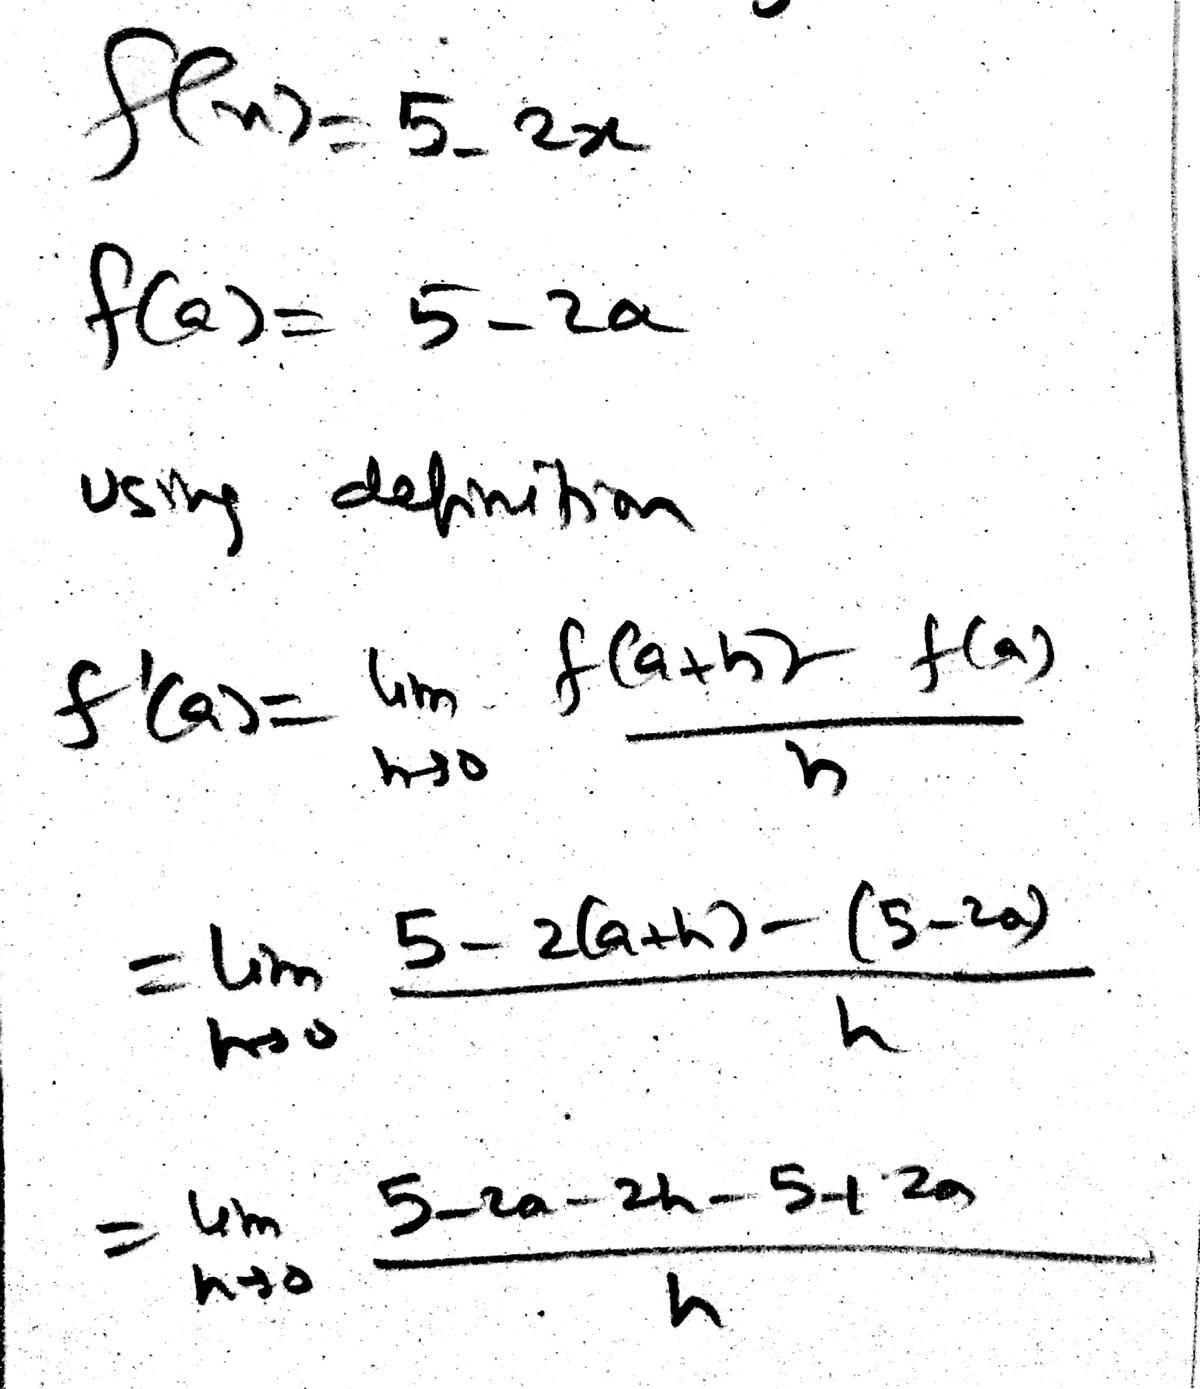 f(x) = 5 - 2x
f(a) = 5 - 2a
using definition
f'(a) = lim h→0 f(a+h) - f(a) / h
= lim h→0 5 - 2(a+h) - (5 - 2a) / h
= lim h→0 5 - 2a - 2h - 5 + 2a / h